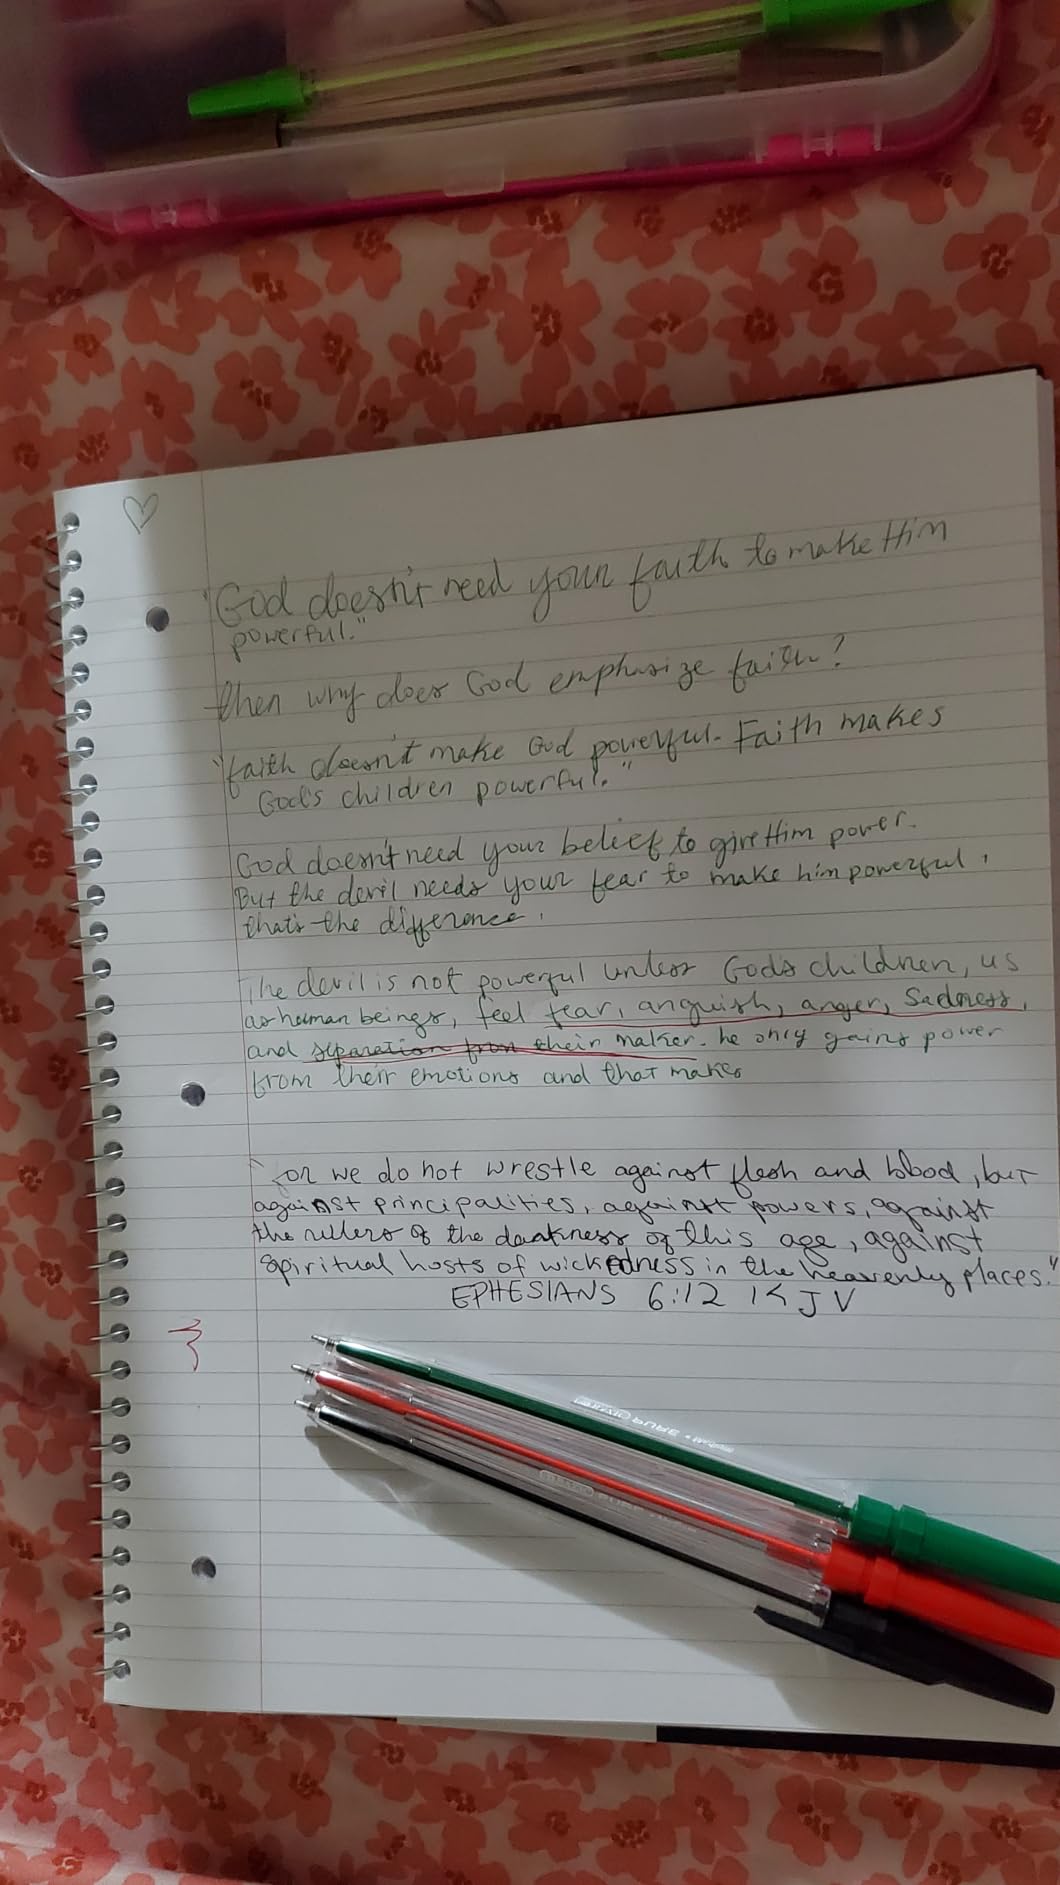 "God doesn't need your faith to make Him
powerful."
then why does God emphasize faith?
"faith doesn't make God powerful. Faith makes
God's children powerful."
God doesn't need your belief to give Him power.
But the devil needs your fear to make him powerful,
that's the difference.
The devil is not powerful unless God's children, us
as human beings, feel fear, anguish, anger, sadness,
and separation from their maker. he only gains power
from their emotions and that makes
"for we do not wrestle against flesh and blood, but
against principalities, against powers, against
the rulers of the darkness of this age, against
spiritual hosts of wickedness in the heavenly places."
EPHESIANS 6:12 KJV
PURE